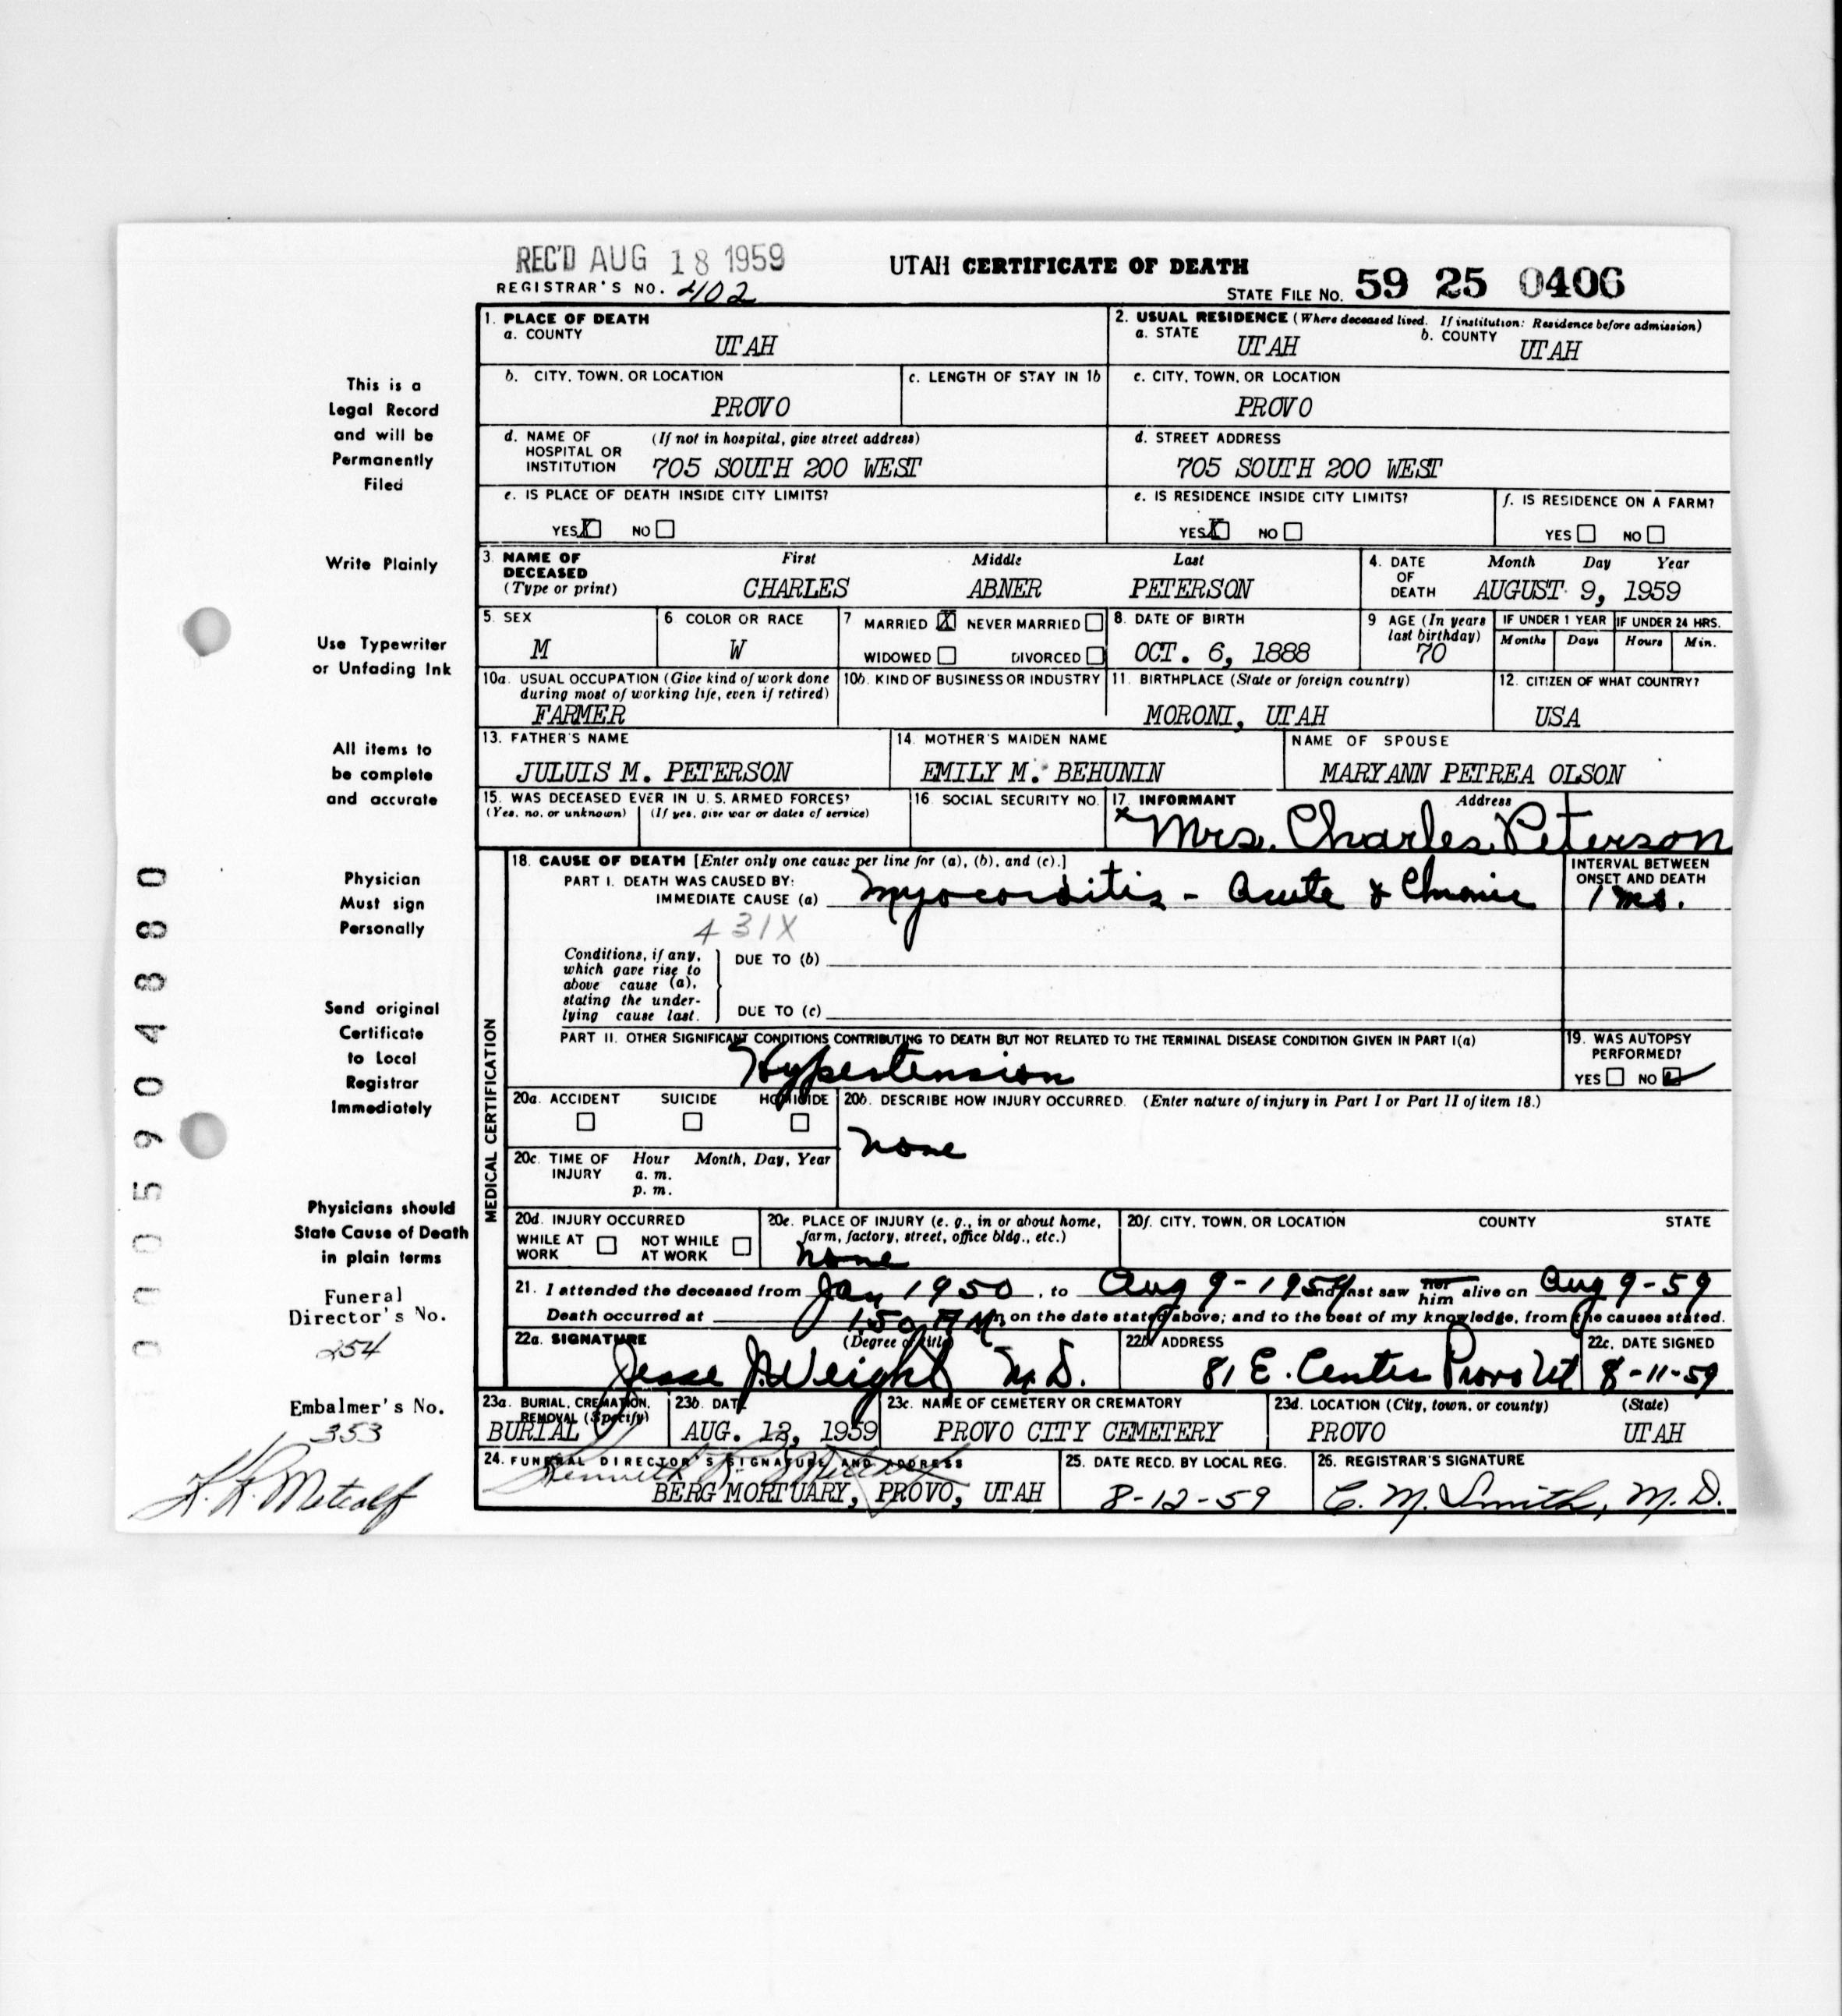 REC'D AUG 18 1959
REGISTRAR'S NO. 402
UTAH CERTIFICATE OF DEATH
STATE FILE NO. 59 25 0406
1. PLACE OF DEATH
a. COUNTY
UTAH
2. USUAL RESIDENCE (Where deceased lived. If institution: Residence before admission)
a. STATE
UTAH
b. COUNTY
UTAH
b. CITY, TOWN, OR LOCATION
PROVO
c. LENGTH OF STAY IN 1b
c. CITY, TOWN, OR LOCATION
PROVO
d. NAME OF HOSPITAL OR INSTITUTION
(If not in hospital, give street address)
705 SOUTH 200 WEST
d. STREET ADDRESS
705 SOUTH 200 WEST
e. IS PLACE OF DEATH INSIDE CITY LIMITS?
YES X NO
e. IS RESIDENCE INSIDE CITY LIMITS?
YES X NO
f. IS RESIDENCE ON A FARM?
YES NO
3. NAME OF DECEASED (Type or print)
First Middle Last
CHARLES ABNER PETERSON
4. DATE OF DEATH
Month Day Year
AUGUST 9, 1959
5. SEX
M
6. COLOR OR RACE
W
7 MARRIED X NEVER MARRIED
WIDOWED DIVORCED
8. DATE OF BIRTH
OCT. 6, 1888
9 AGE (In years last birthday)
70
IF UNDER 1 YEAR
Months Days
IF UNDER 24 HRS.
Hours Min.
10a. USUAL OCCUPATION (Give kind of work done during most of working life, even if retired)
FARMER
10b. KIND OF BUSINESS OR INDUSTRY
11. BIRTHPLACE (State or foreign country)
MORONI, UTAH
12. CITIZEN OF WHAT COUNTRY?
USA
13. FATHER'S NAME
JULUIS M. PETERSON
14. MOTHER'S MAIDEN NAME
EMILY M. BEHUNIN
NAME OF SPOUSE
MARYANN PETREA OLSON
15. WAS DECEASED EVER IN U. S. ARMED FORCES?
(Yes, no, or unknown) (If yes, give war or dates of service)
16. SOCIAL SECURITY NO.
17. INFORMANT Address
x Mrs. Charles Peterson
MEDICAL CERTIFICATION
18. CAUSE OF DEATH [Enter only one cause per line for (a), (b), and (c).]
PART I. DEATH WAS CAUSED BY:
IMMEDIATE CAUSE (a) Myocarditis - Acute & Chronic
INTERVAL BETWEEN ONSET AND DEATH
1 mo.
431X
Conditions, if any, which gave rise to above cause (a), stating the underlying cause last.
DUE TO (b)
DUE TO (c)
PART II. OTHER SIGNIFICANT CONDITIONS CONTRIBUTING TO DEATH BUT NOT RELATED TO THE TERMINAL DISEASE CONDITION GIVEN IN PART I(a)
Hypertension
19. WAS AUTOPSY PERFORMED?
YES NO
20a. ACCIDENT SUICIDE HOMICIDE
20b. DESCRIBE HOW INJURY OCCURRED. (Enter nature of injury in Part I or Part II of item 18.)
none
20c. TIME OF INJURY
Hour Month, Day, Year
a. m.
p. m.
20d. INJURY OCCURRED
WHILE AT WORK NOT WHILE AT WORK
20e. PLACE OF INJURY (e. g., in or about home, farm, factory, street, office bldg., etc.)
none
20f. CITY, TOWN, OR LOCATION COUNTY STATE
21. I attended the deceased from Jan 1950, to Aug 9-1959 and last saw her him alive on Aug 9-59
Death occurred at 1:50 A M m, on the date stated above; and to the best of my knowledge, from the causes stated.
22a. SIGNATURE (Degree or title)
Jesse J. Weight M.D.
22b ADDRESS
81 E. Center Provo Ut
22c. DATE SIGNED
8-11-59
23a. BURIAL, CREMATION, REMOVAL (Specify)
BURIAL
23b. DATE
AUG. 12, 1959
23c. NAME OF CEMETERY OR CREMATORY
PROVO CITY CEMETERY
23d. LOCATION (City, town, or county) (State)
PROVO UTAH
24. FUNERAL DIRECTOR'S SIGNATURE AND ADDRESS
BERG MORTUARY, PROVO, UTAH
25. DATE RECD. BY LOCAL REG.
8-12-59
26. REGISTRAR'S SIGNATURE
C. M. Smith, M. D.
This is a
Legal Record
and will be
Permanently
Filed
Write Plainly
Use Typewriter
or Unfading Ink
All items to
be complete
and accurate
Physician
Must sign
Personally
Send original
Certificate
to Local
Registrar
Immediately
Physicians should
State Cause of Death
in plain terms
Funeral
Director's No.
254
Embalmer's No.
353
K. K. Metcalf